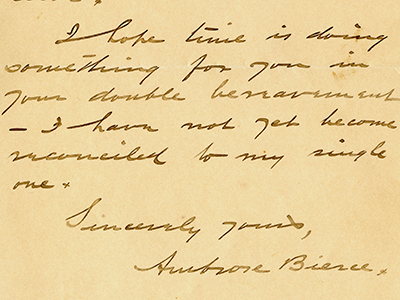 I hope time is doing
something for you in
your double bereavement
– I have not yet become
reconciled to my single
one.
Sincerely yours,
Ambrose Bierce.